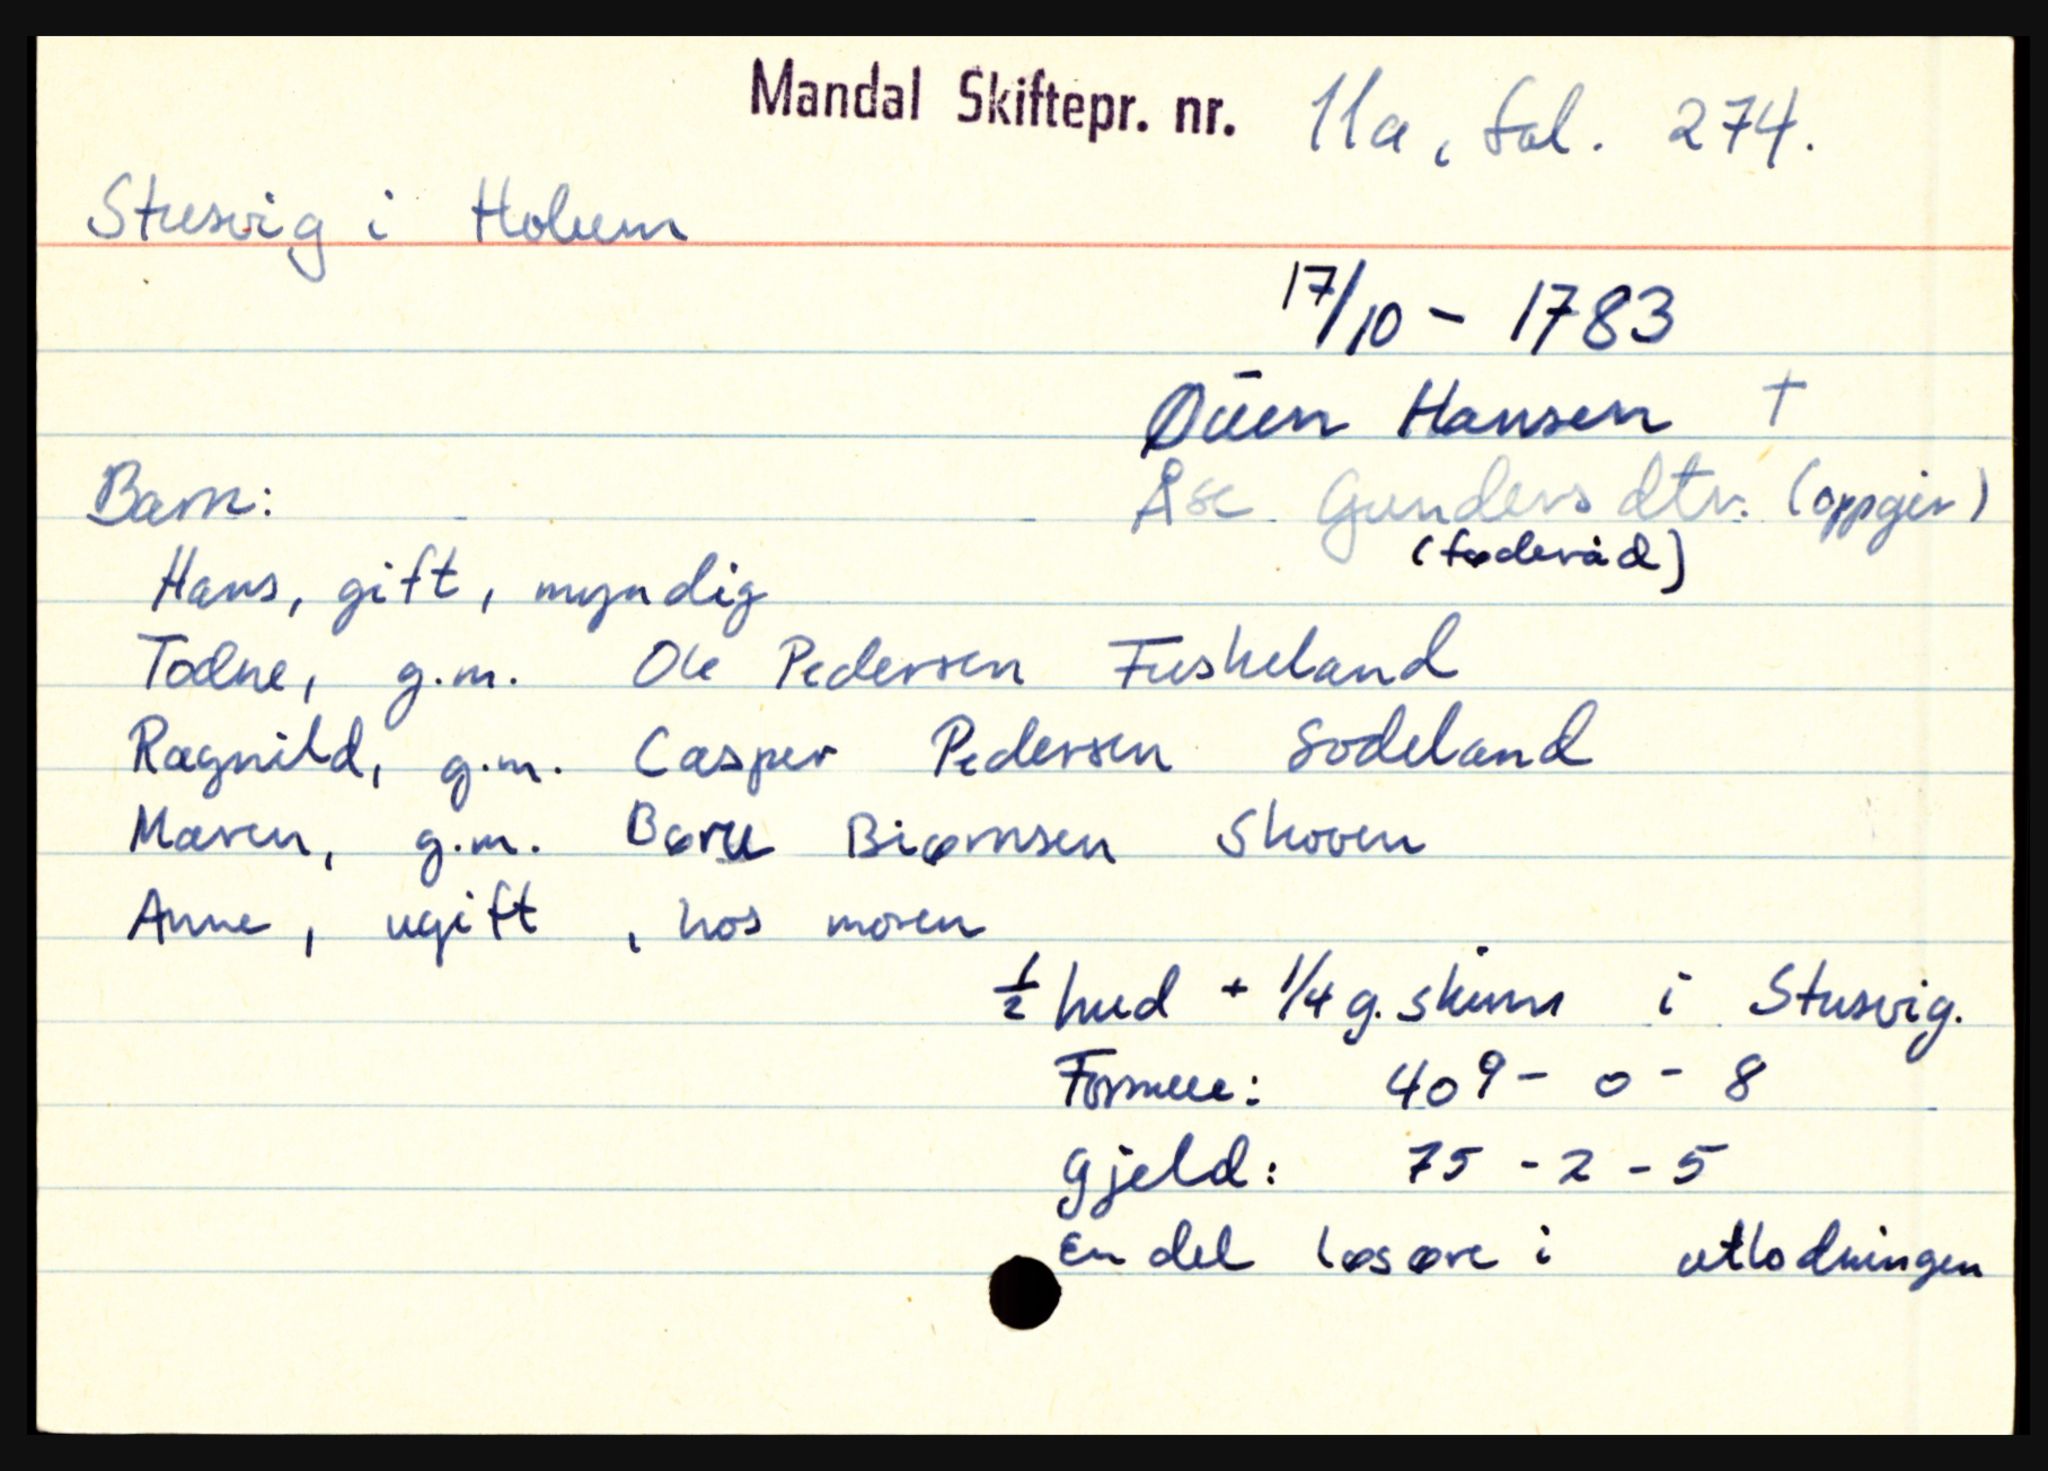 Mandal Skiftepr. nr. 11a, fol. 274.
Stusvig i Holum
17/10 - 1783
Øuen Hansen †
Barn: Åse Gundersdtr. (oppgir)
(føderåd)
Hans, gift, myndig
Todne, g.m. Ole Pedersen Fuskeland
Ragnild, g.m. Casper Pedersen Sodeland
Maren, g.m. Børu Biørnsen Skoven
Anne, ugift, hos moren
1/2 hud + 1/4 g. skinn i Stusvig.
Formue: 409 - 0 - 8
Gjeld: 75 - 2 - 5
En del løsøre i utlodningen